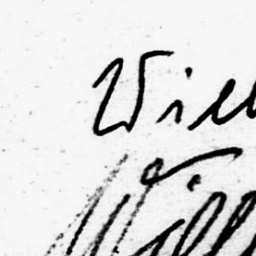 Will
Will